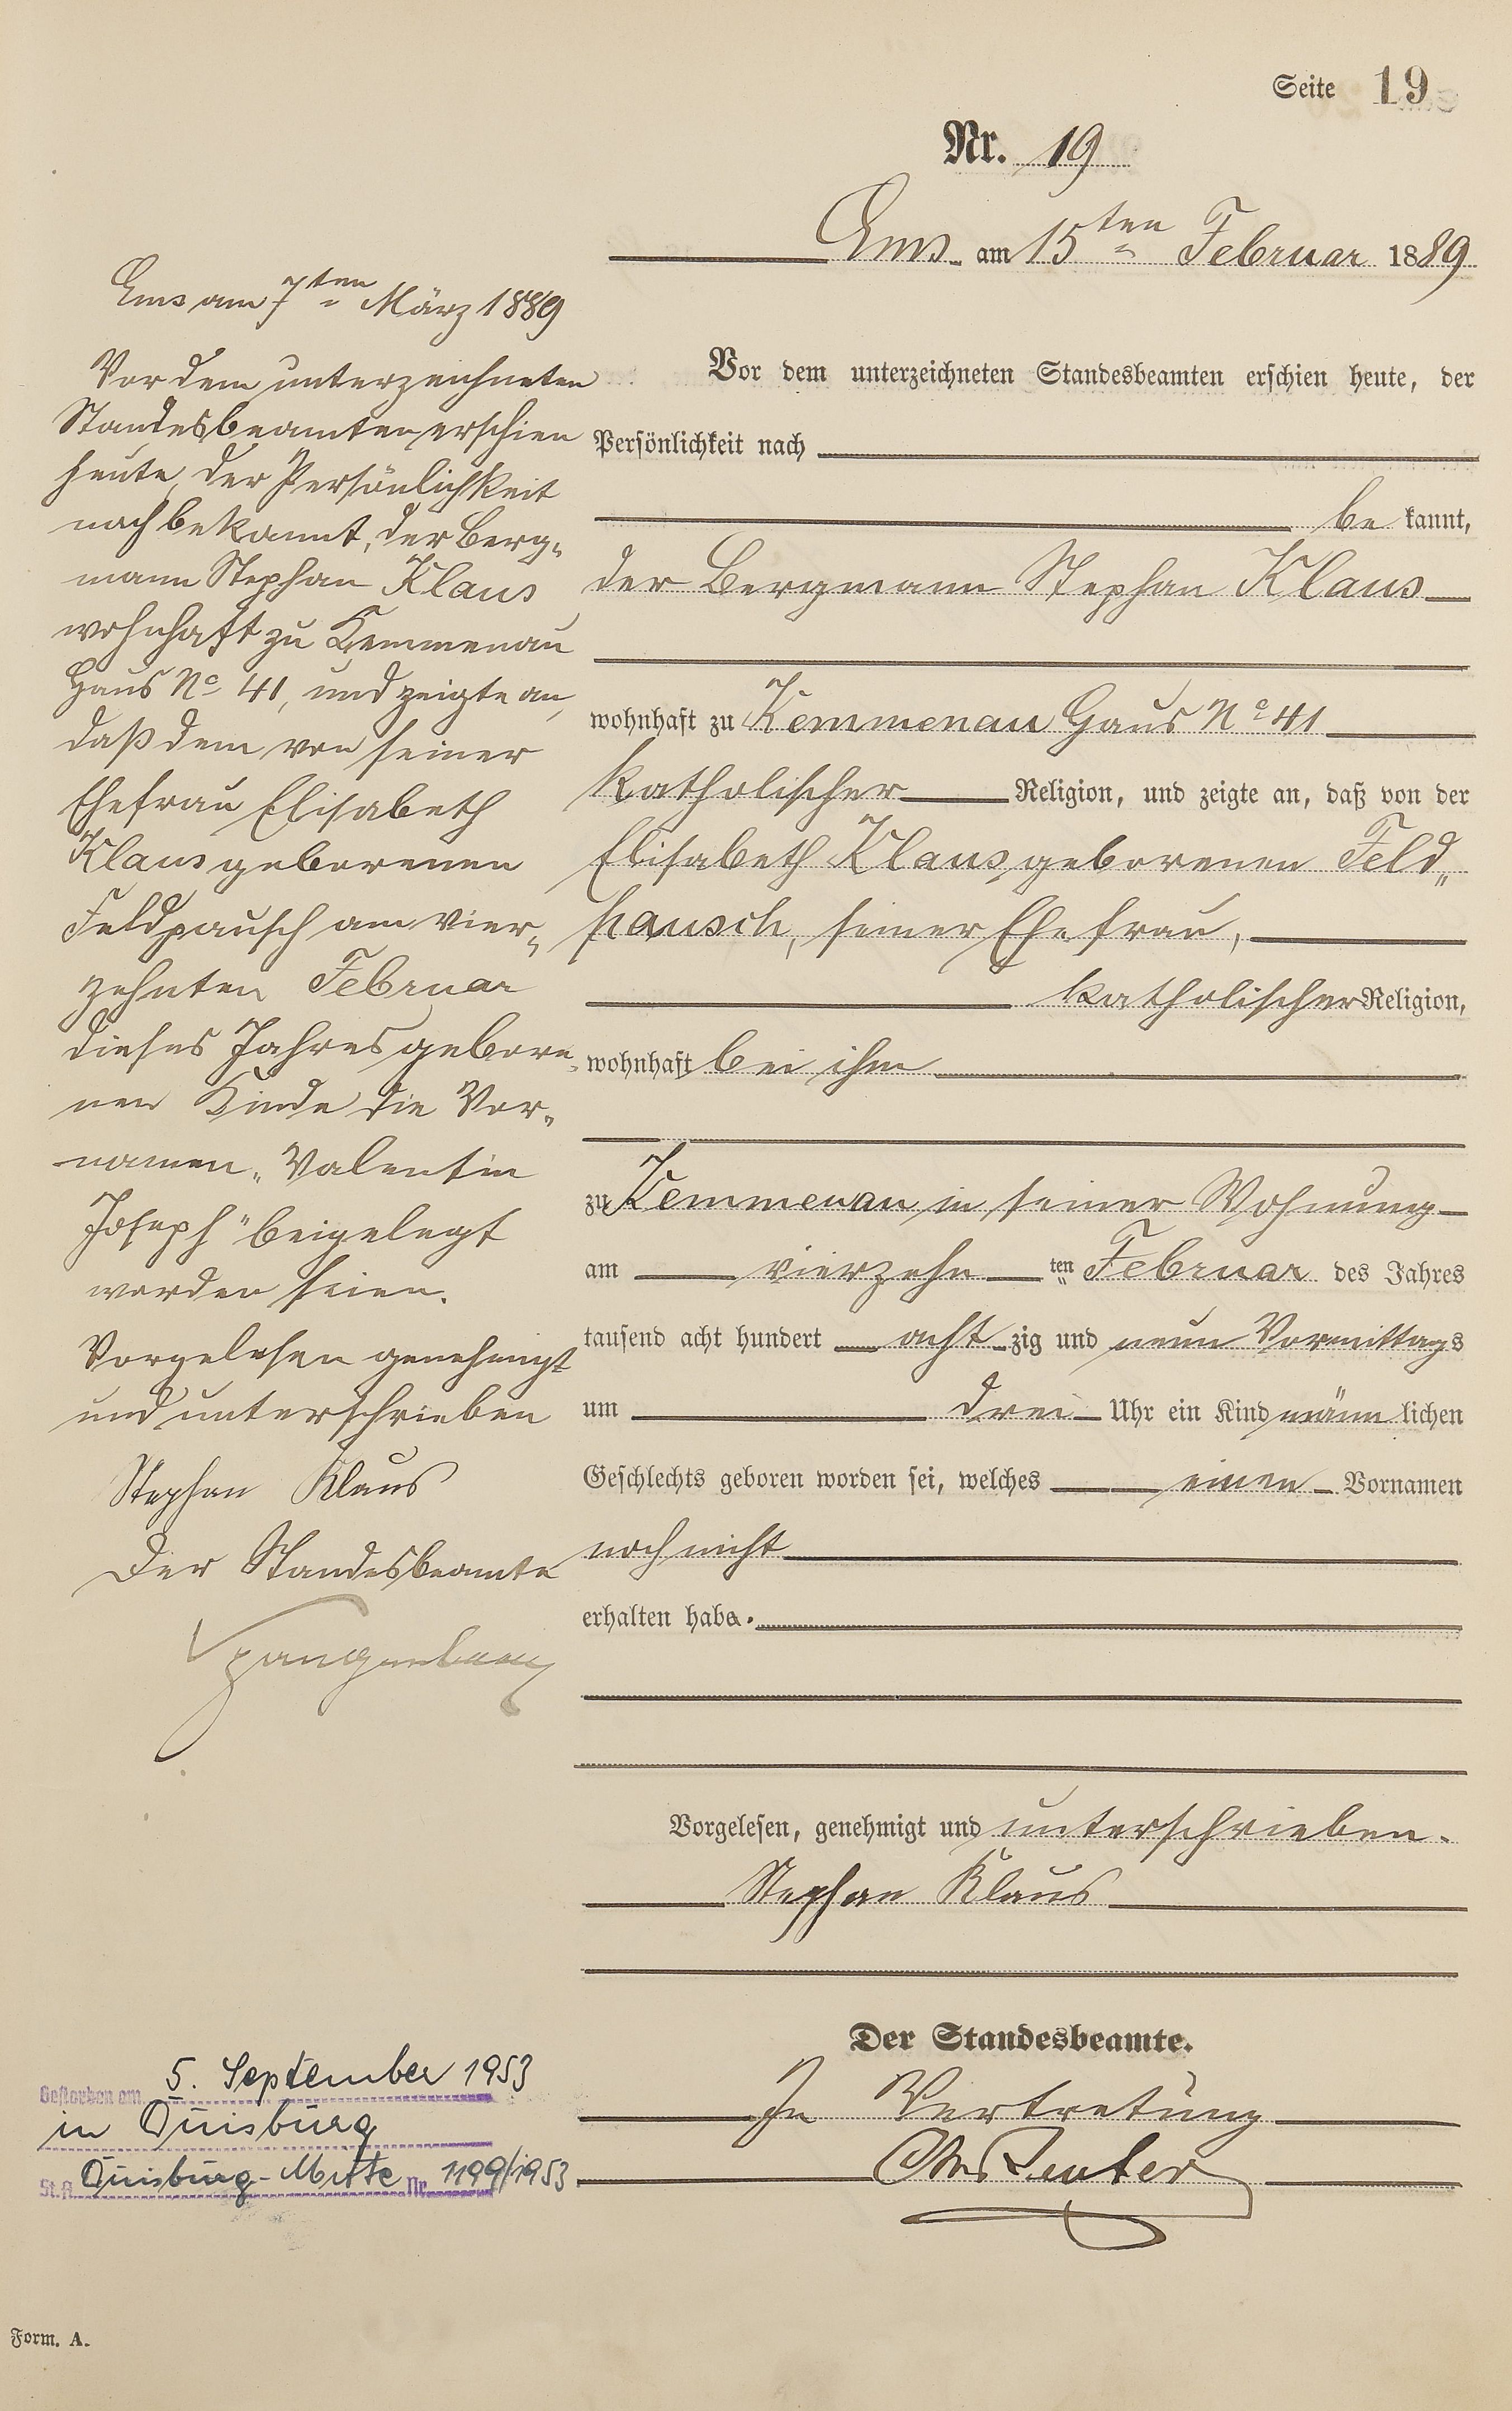 Seite 19
Nr. 19
Ems am 15ten Februar 1889
Vor dem unterzeichneten Standesbeamten erschien heute, der
Persönlichkeit nach
be kannt,
der Bergmann Stephan Klaus
wohnhaft zu Kemmenau Haus No 41
katholischer Religion, und zeigte an, daß von der
Elisabeth Klaus, geborenen Feld„
pausch, seiner Ehefrau,
katholischer Religion,
wohnhaft bei ihm
zu Kemmenau in seiner Wohnung
am vierzehn ten Februar des Jahres
tausend acht hundert acht zig und neun Vormittags
um drei Uhr ein Kind männ lichen
Geschlechts geboren worden sei, welches einen Vornamen
noch nicht
erhalten habe.
Vorgelesen, genehmigt und unterschrieben.
Stephan Klaus
Der Standesbeamte.
In Vertretung
Ems am 7ten März 1889
Vor dem unterzeichneten
Standesbeamten erschien
heute, der Persönlichkeit
nach bekannt, der Berg„
mann Stephan Klaus
wohnhaft zu Kemmenau
Haus No 41, und zeigte an,
daß dem von seiner
Ehefrau Elisabeth
Klaus geborenen
Feldpausch am vier„
zehnten Februar
dieses Jahres gebore„
nen Kinde die Vor„
namen „Valentin
Joseph" beigelegt
worden seien.
Vorgelesen genehmigt
und unterschrieben
Stephan Klaus
Der Standesbeamte
Spangenberg
Gestorben am 5. September 1953
in Duisburg
St.A. Duisburg-Mitte Nr. 1199/1953.
Form. A.